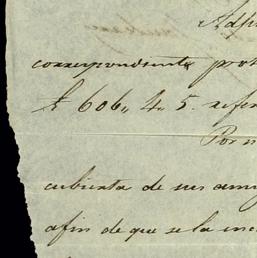 Adju
correspondiente prot
£ 606,, 4,, 5. refer
Por m
cubierta de sus ami
afin de que se la inc